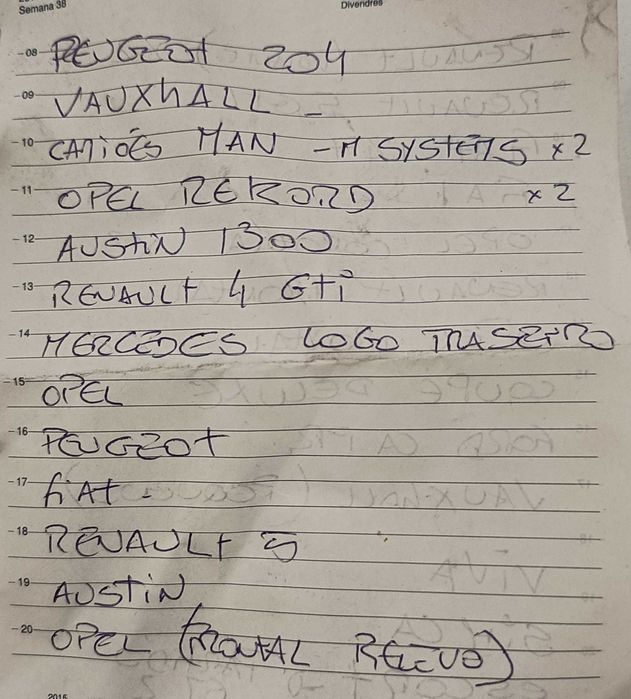 Semana 38 Divendres
08 PEUGEOT 204
09 VAUXHALL -
10 CAMIOÉS MAN - M SYSTEMS x 2
11 OPEL REKORD x 2
12 AUSTIN 1300
13 RENAULT 4 Gti
14 MERCEDES LOGO TRASERO
15 OPEL
16 PEUGEOT
17 fiAt -
18 RENAULT 5
19 AUSTIN
20 OPEL (FRONTAL RELEVO)
2015